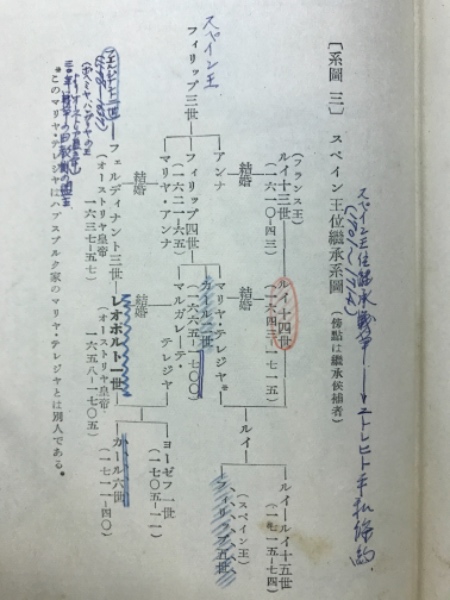 〔系圖 三〕 スペイン王位繼承系圖(傍點は繼承候補者)
スペイン王位継承戦争
(1701〜1714)
(フランス王)
ルイ十三世
(一六一〇-四三)
ルイ十四世
(一六四三-一七一五)
ルイ
ルイ
ルイ十五世
(一七一五-七四)
結婚
結婚
アンナ
マリヤ・テレジヤ*
フィリップ五世
(スペイン王)
スペイン王
フィリップ三世
フィリップ四世
(一六二一-六五)
カルル二世
(一六六五-一七〇〇)
マリヤ・アンナ
マルガレーテ・テレジヤ
結婚
結婚
ヨーゼフ一世
(一七〇五-一一)
フェルディナント三世
(オーストリヤ皇帝)
一六三七-五七
レオポルト一世
(オーストリヤ皇帝)
一六五八-一七〇五
カール六世
(一七一一-四〇)
*このマリヤ・テレジヤはハプスブルク家のマリヤ・テレジヤとは別人である。